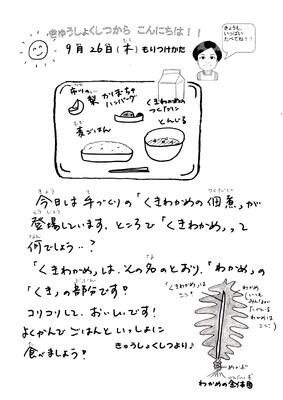 きゅうしょくしつから こんにちは!!
きょうも、
いっぱい
たべてね!!
9月26日(木)もりつけかた
市川の
梨
かぼちゃ
ハンバーグ
くきわかめの
つくだに
麦ごはん
とんじる
今日は手づくりの「くきわかめの佃煮」が
登場しています。ところで「くきわかめ」って
何でしょう・・?
「くきわかめ」は、その名のとおり、「わかめ」の
「くき」の部分です。
コリコリして、おいしいです!
よくかんでごはんといっしょに
食べましょう!
きゅうしょくしつより♪
「くきわかめ」は
ココ!
わかめ
(いつも
みんなが
たべている
わかめは
ココ)
めかぶ
わかめの全体図